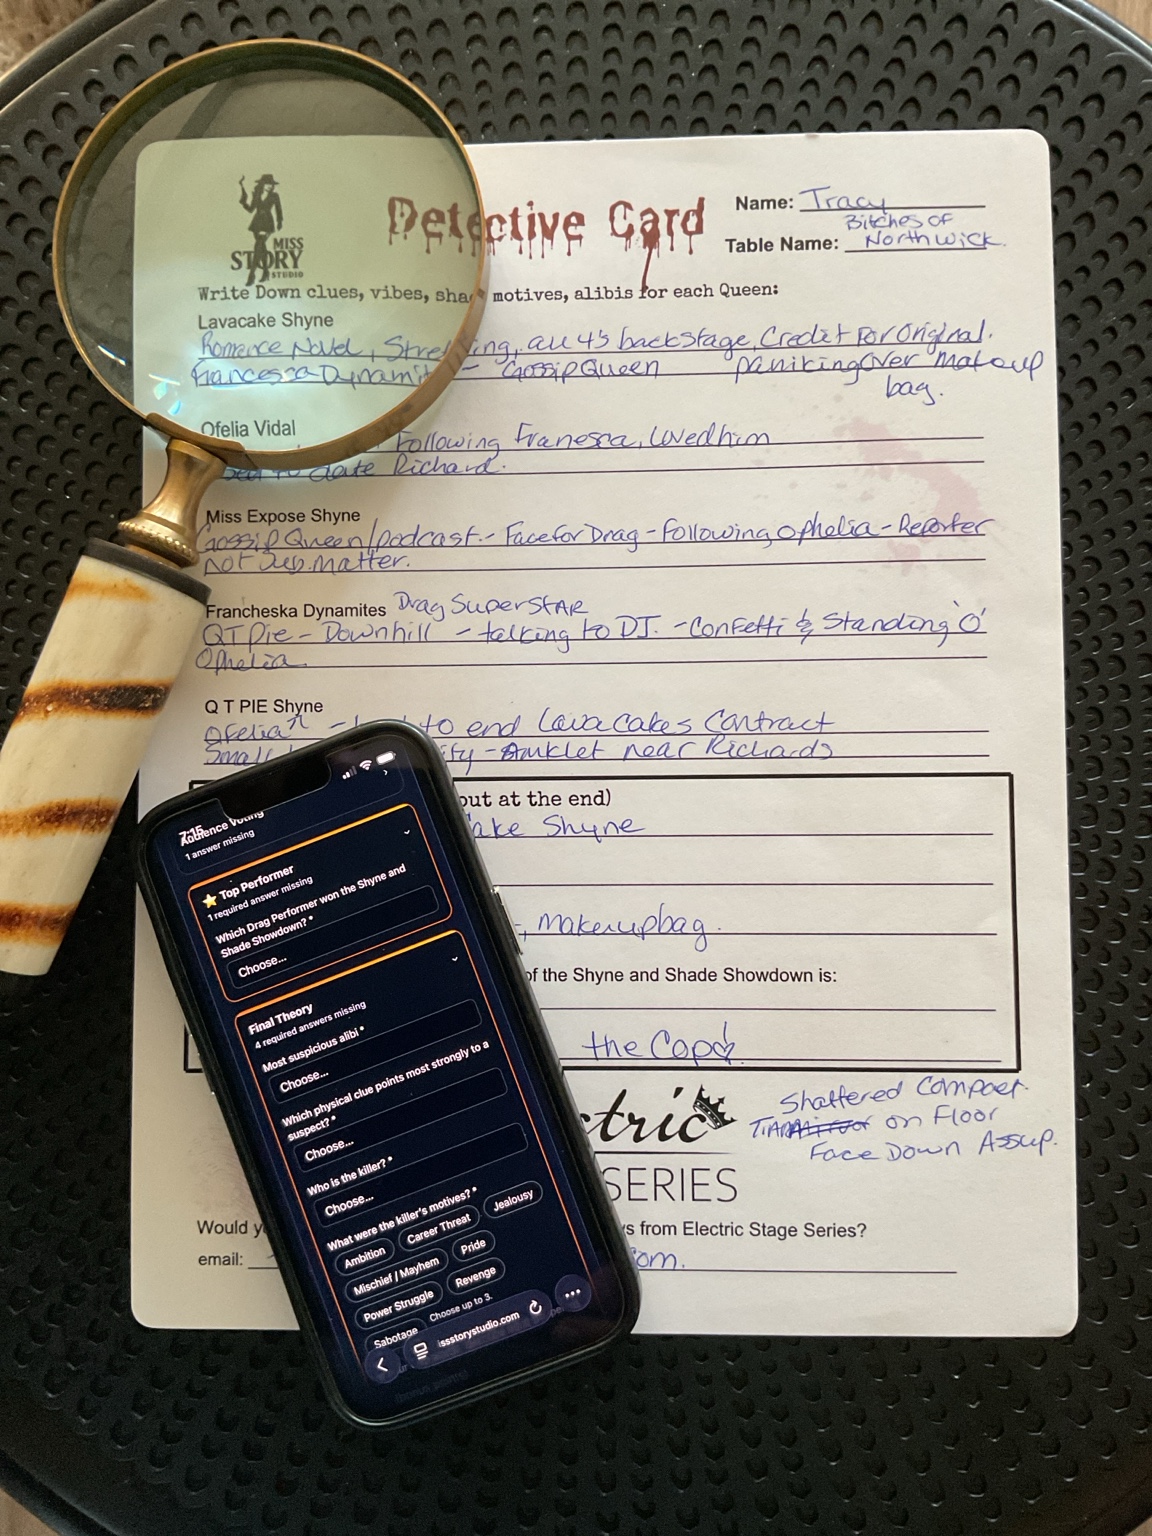 MISS
STORY
STUDIO
Detective Card
Name: Tracy
Table Name: Bitches of
Northwick
Write Down clues, vibes, motives, alibis for each Queen:
Lavacake Shyne
Romance Novel, all 4's backstage, Credit for Original.
Francesca Dynamit - Gossip Queen panikingover makeup
bag.
Ofelia Vidal
Following Franesca, loved him
to date Richard.
Miss Expose Shyne
Gossip Queen/podcast - Face for Drag - Following Ophelia - Reporter
not Sup. matter.
Francheska Dynamites Drag SuperStAR
QT Pie - Downhill - talking to DJ. - Confetti & Standing 'O'
Ophelia
Q T PIE Shyne
Ofelia to end Lava Cakes Contract
Small - Anklet near Richards
out at the end)
ake Shyne
makeupbag.
of the Shyne and Shade Showdown is:
the Cop!
ctric
SERIES
Shattered Compact
on Floor
Face Down Assup.
Would y s from Electric Stage Series?
email: om.
7:15
Audience Voting
1 answer missing
⭐ Top Performer
1 required answer missing
Which Drag Performer won the Shyne and
Shade Showdown? *
Choose...
Final Theory
4 required answers missing
Most suspicious alibi *
Choose...
Which physical clue points most strongly to a
suspect? *
Choose...
Who is the killer? *
Choose...
What were the killer's motives? *
Ambition Career Threat Jealousy
Mischief / Mayhem Pride
Power Struggle Revenge
Sabotage Choose up to 3.
issstorystudio.com